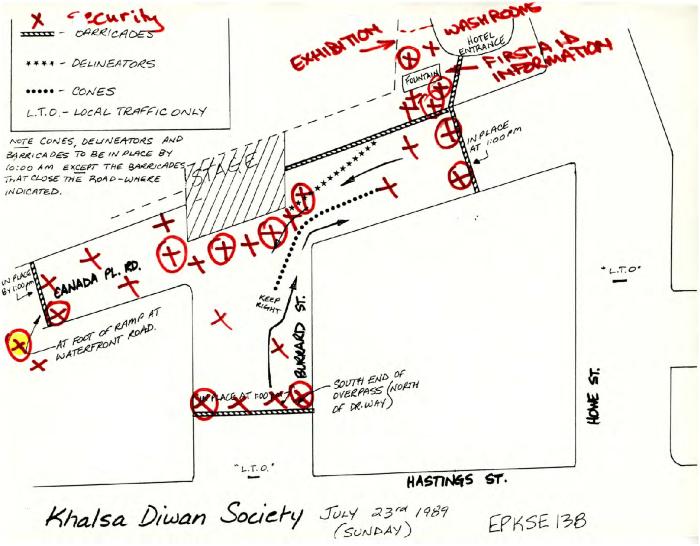 X - Security
- BARRICADES
**** - DELINEATORS
•••••• - CONES
L.T.O. - LOCAL TRAFFIC ONLY
NOTE CONES, DELINEATORS AND
BARRICADES TO BE IN PLACE BY
10:00 AM EXCEPT THE BARRICADES
THAT CLOSE THE ROAD - WHERE
INDICATED.
EXHIBITION
WASHROOMS
HOTEL
ENTRANCE
FIRST AID
INFORMATION
FOUNTAIN
IN PLACE
AT 1:00 PM
STAGE
IN PLACE
BY 1:00 pm
CANADA PL. RD.
AT FOOT OF RAMP AT
WATERFRONT ROAD.
KEEP
RIGHT
BURRARD ST.
"L.T.O."
IN PLACE AT 1:00
SOUTH END OF
OVERPASS (NORTH
OF DR. WAY)
HOWE ST.
"L.T.O."
HASTINGS ST.
Khalsa Diwan Society JULY 23rd 1989
(SUNDAY)
EPKSE 138